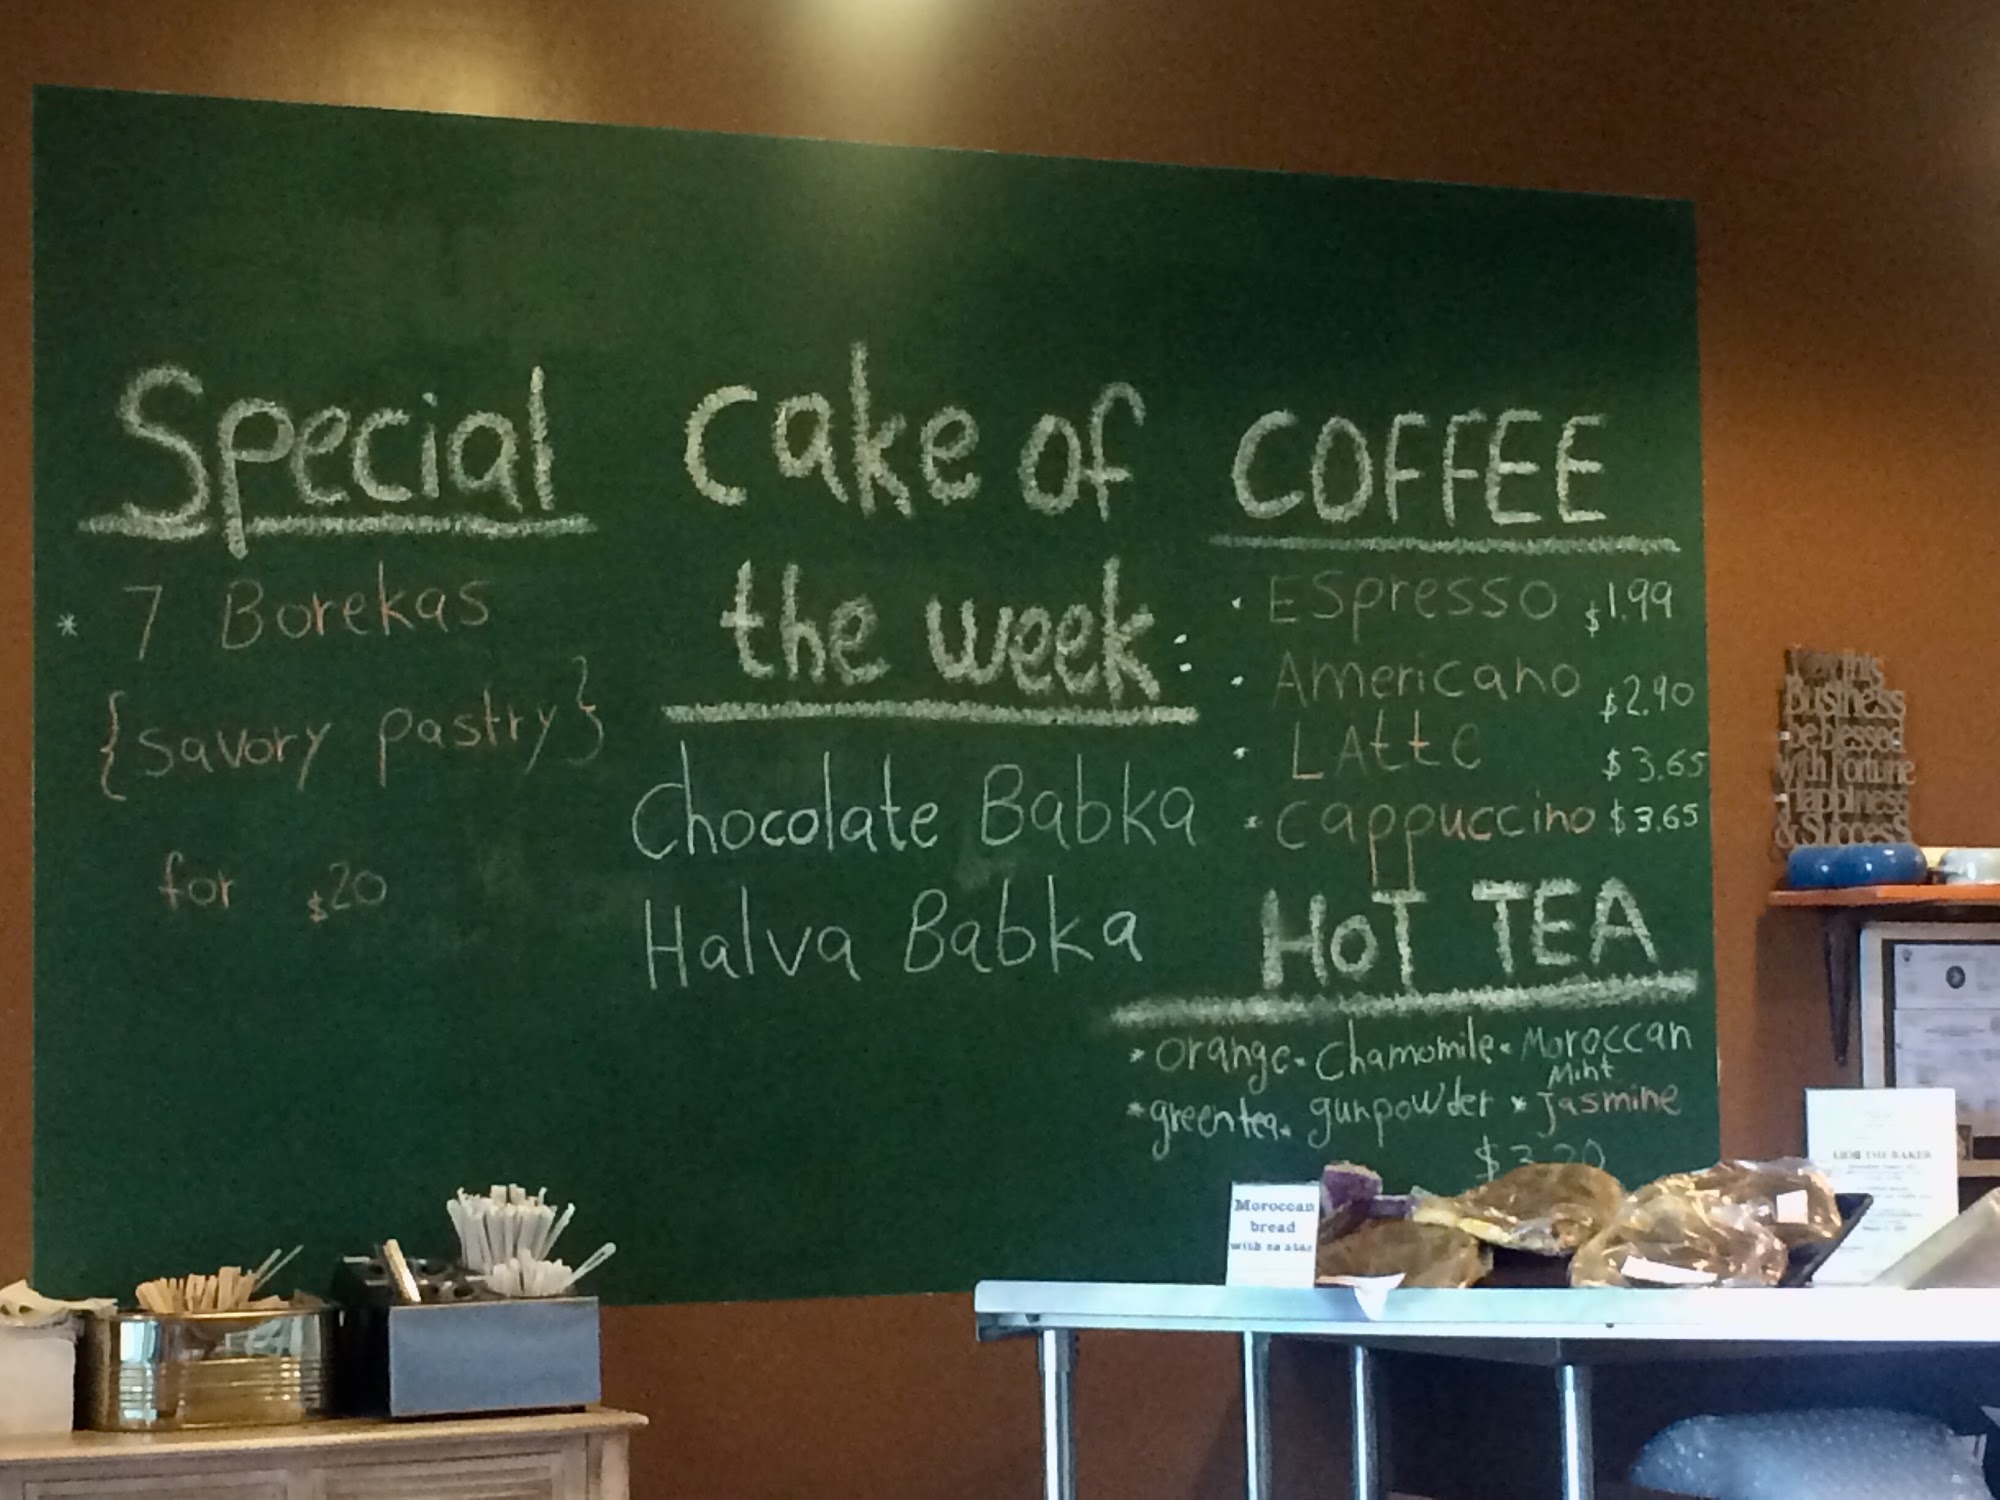 Special
* 7 Borekas
{savory pastry}
for $20
Cake of
the week:
Chocolate Babka
Halva Babka
COFFEE
• Espresso $1.99
• Americano $2.90
• LAtte $3.65
• Cappuccino $3.65
HoT TEA
* orange • Chamomile • Moroccan
Mint
* green tea • gunpowder * Jasmine
$3.20
Business
be blessed
with Fortune
Happiness
& Success
Moroccan
bread
with za atar
THE BAKER